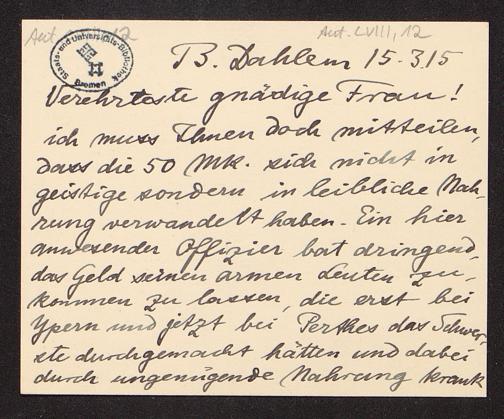 Aut. LVIII, 12
Staats- und Universitäts-Bibliothek
Bremen
B. Dahlem 15.3.15
Verehrteste gnädige Frau!
ich muss Ihnen doch mitteilen,
dass die 50 Mk. sich nicht in
geistige sondern in leibliche Nah-
rung verwandelt haben. Ein hier
anwesender Offizier bat dringend,
das Geld seinen armen Leuten zu-
kommen zu lassen, die erst bei
Ypern und jetzt bei Perthes das Schwer-
ste durchgemacht hätten und dabei
durch ungenügende Nahrung krank